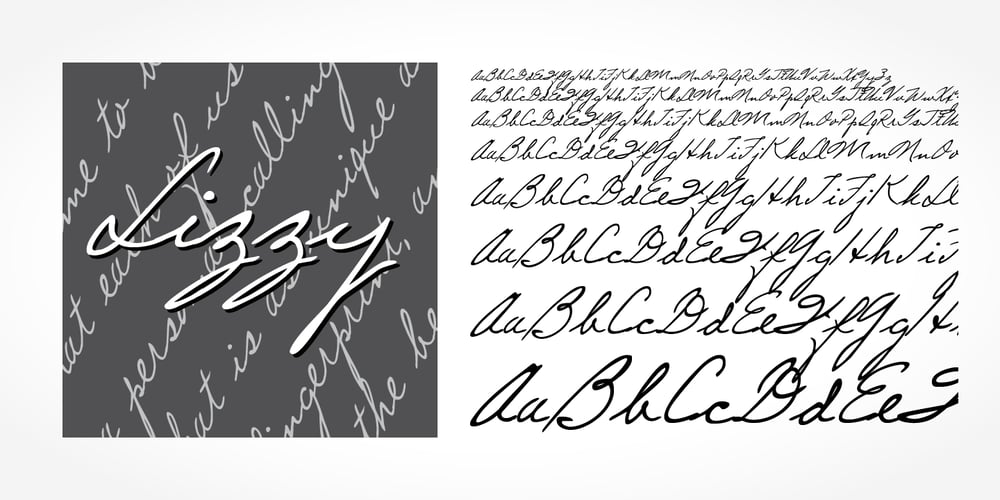 me to
that each of us
a personal calling
that is as unique a
fingerprint,
the be
Lizzy
AaBbCcDdEeFfGgHhIiJjKkLlMmNnOoPpQqRrSsTtUuVvWwXxYyZz
AaBbCcDdEeFfGgHhIiJjKkLlMmNnOoPpQqRrSsTtUuVvWwXx
AaBbCcDdEeFfGgHhIiJjKkLlMmNnOoPpQqRrSsTtUu
AaBbCcDdEeFfGgHhIiJjKkLlMmNnOo
AaBbCcDdEeFfGgHhIiJjKkLl
AaBbCcDdEeFfGgHhIi
AaBbCcDdEeFfGgH
AaBbCcDdEeF